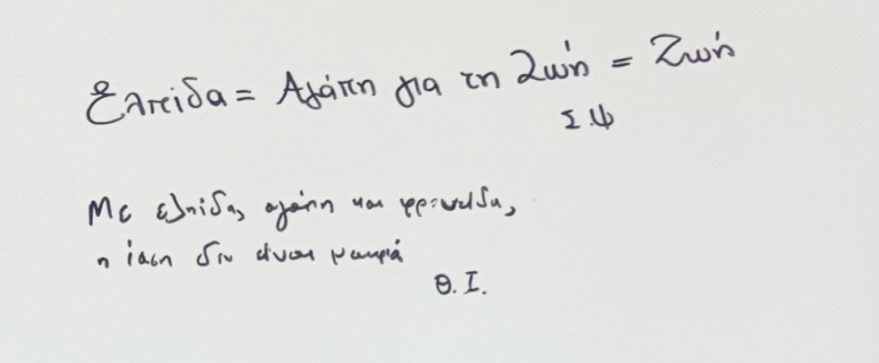 Ελπίδα = Αγάπη για τη Ζωή = Ζωή
Σ.Ψ
Με ελπίδα, αγάπη και φροντίδα,
η ίαση δεν είναι μακριά
Θ.Ι.